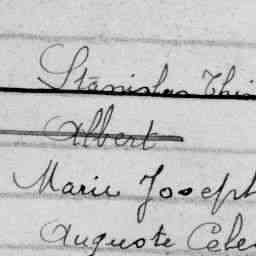 Stanislas Thi
Albert
Marie Joseph
Auguste Cele